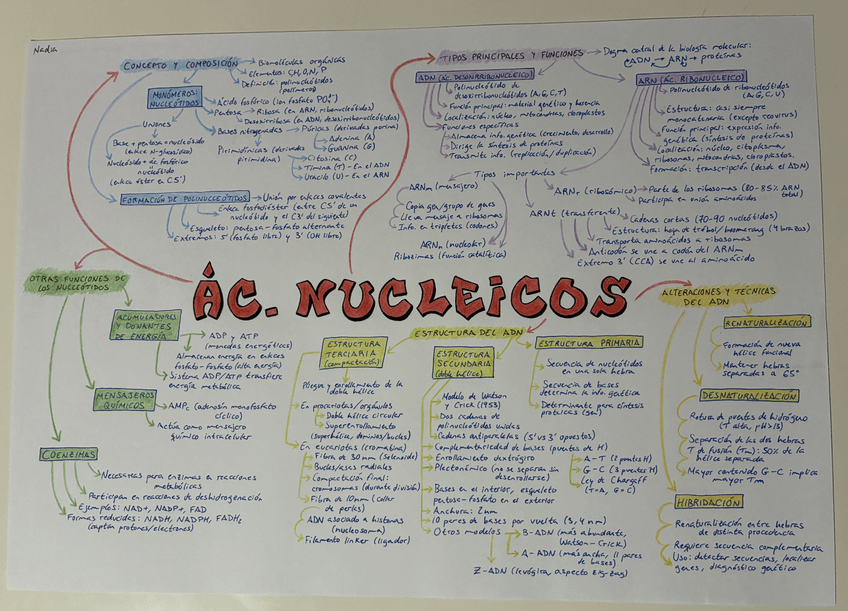 Nadia
CONCEPTO Y COMPOSICIÓN
Biomoléculas orgánicas
Elementos: C,H,O,N,P
Definición: polinucleótidos
(polímeros)
MONÓMEROS:
NUCLEÓTIDOS
Ácido fosfórico (ion fosfato PO₄³⁻)
Pentosa → Ribosa (en ARN, ribonucleótidos)
Desoxirribosa (en ADN, desoxirribonucleótidos)
Bases nitrogenadas → Púricas (derivadas purina)
Adenina (A)
Guanina (G)
Pirimidínicas (derivadas
pirimidina)
Citosina (C)
Timina (T) - En el ADN
Uracilo (U) - En el ARN
Uniones
Base + pentosa = nucleósido
(enlace N-glucosídico)
Nucleósido + ác. fosfórico
= nucleótido
(enlace éster en C5')
FORMACIÓN DE POLINUCLEÓTIDOS
Unión por enlaces covalentes
Enlace fosfodiéster (entre C5' de un
nucleótido y el C3' del siguiente)
Esqueleto: pentosa - fosfato alternante
Extremos: 5' (fosfato libre) y 3' (OH libre)
TIPOS PRINCIPALES Y FUNCIONES
Dogma central de la biología molecular:
ADN → ARN → proteínas
ADN (ÁC. DESOXIRRIBONUCLEICO)
Polinucleótido de
desoxirribonucleótidos (A,G,C,T)
Función principal: material genético y herencia
Localización: núcleo, mitocondrias, cloroplastos
Funciones específicas
Almacena info. genética (crecimiento, desarrollo)
Dirige la síntesis de proteínas
Transmite info. (replicación/duplicación)
ARN (ÁC. RIBONUCLEICO)
Polinucleótido de ribonucleótidos
(A,G,C,U)
Estructura: casi siempre
monocatenaria (excepto reovirus)
Función principal: expresión info.
genética (síntesis de proteínas)
Localización: núcleo, citoplasma,
ribosomas, mitocondrias, cloroplastos.
Formación: transcripción (desde el ADN)
Tipos importantes
ARNm (mensajero)
Copia gen/grupo de genes
Lleva mensaje a ribosomas
Info. en tripletes (codones)
ARNn (nucleolar)
Ribozimas (función catalítica)
ARNr (ribosómico)
Parte de los ribosomas (80-85% ARN
total)
Participa en unión aminoácidos
ARNt (transferente)
Cadenas cortas (70-90 nucleótidos)
Estructura: hoja de trébol/boomerang (4 brazos)
Transporta aminoácidos a ribosomas
Anticodón se une a codón del ARNm
Extremo 3' (CCA) se une al aminoácido
ÁC. NUCLEICOS
OTRAS FUNCIONES DE
LOS NUCLEÓTIDOS
ACUMULADORES
Y DONANTES
DE ENERGÍA
ADP y ATP
(monedas energéticas)
Almacenan energía en enlaces
fosfato-fosfato (alta energía)
Sistema ADP/ATP transfiere
energía metabólica
MENSAJEROS
QUÍMICOS
AMPc (adenosín monofosfato
cíclico)
Actúa como mensajero
químico intracelular
COENZIMAS
Necesarias para enzimas a reacciones
metabólicas
Participan en reacciones de deshidrogenación
Ejemplos: NAD+, NADP+, FAD
Formas reducidas: NADH, NADPH, FADH₂
(captan protones/electrones)
ESTRUCTURA DEL ADN
ESTRUCTURA
TERCIARIA
(compactación)
Pliegue y enrollamiento de la
doble hélice
En procariotas/orgánulos
Doble hélice circular
Superenrollamiento
(superhélice, dominios/bucles)
En eucariotas (cromatina)
Fibra de 30 nm (solenoide)
Bucles/ases radiales
Compactación final:
cromosomas (durante división)
Fibra de 10nm (collar
de perlas)
ADN asociado a histonas
(nucleosoma)
Filamento linker (ligador)
ESTRUCTURA
SECUNDARIA
(doble hélice)
Modelo de Watson
y Crick (1953)
Dos cadenas de
polinucleótidos unidas
Cadenas antiparalelas (5' vs 3' opuestos)
Complementariedad de bases (puentes de H)
A-T (2 puentes H)
G-C (3 puentes H)
Ley de Chargaff
(T=A, G=C)
Enrollamiento dextrógiro
Plectonómico (no se separan sin
desenrollarse)
Bases en el interior, esqueleto
pentosa-fosfato en el exterior
Anchura: 2nm
10 pares de bases por vuelta (3,4 nm)
Otros modelos
B-ADN (más abundante,
Watson-Crick)
A-ADN (más ancha, 11 pares
de bases)
Z-ADN (levógira, aspecto zig-zag)
ESTRUCTURA PRIMARIA
Secuencia de nucleótidos
en una sola hebra
Secuencia de bases
determina la info. genética
Determinante para síntesis
proteínas (gen)
ALTERACIONES Y TÉCNICAS
DEL ADN
RENATURALIZACIÓN
Formación de nueva
hélice funcional
Mantener hebras
separadas a 65°
DESNATURALIZACIÓN
Rotura de puentes de hidrógeno
(T alta, pH>13)
Separación de las dos hebras
T de fusión (Tm): 50% de la
hélice separada
Mayor contenido G-C implica
mayor Tm
HIBRIDACIÓN
Renaturalización entre hebras
de distinta procedencia
Requiere secuencia complementaria
Uso: detectar secuencias, localizar
genes, diagnóstico genético